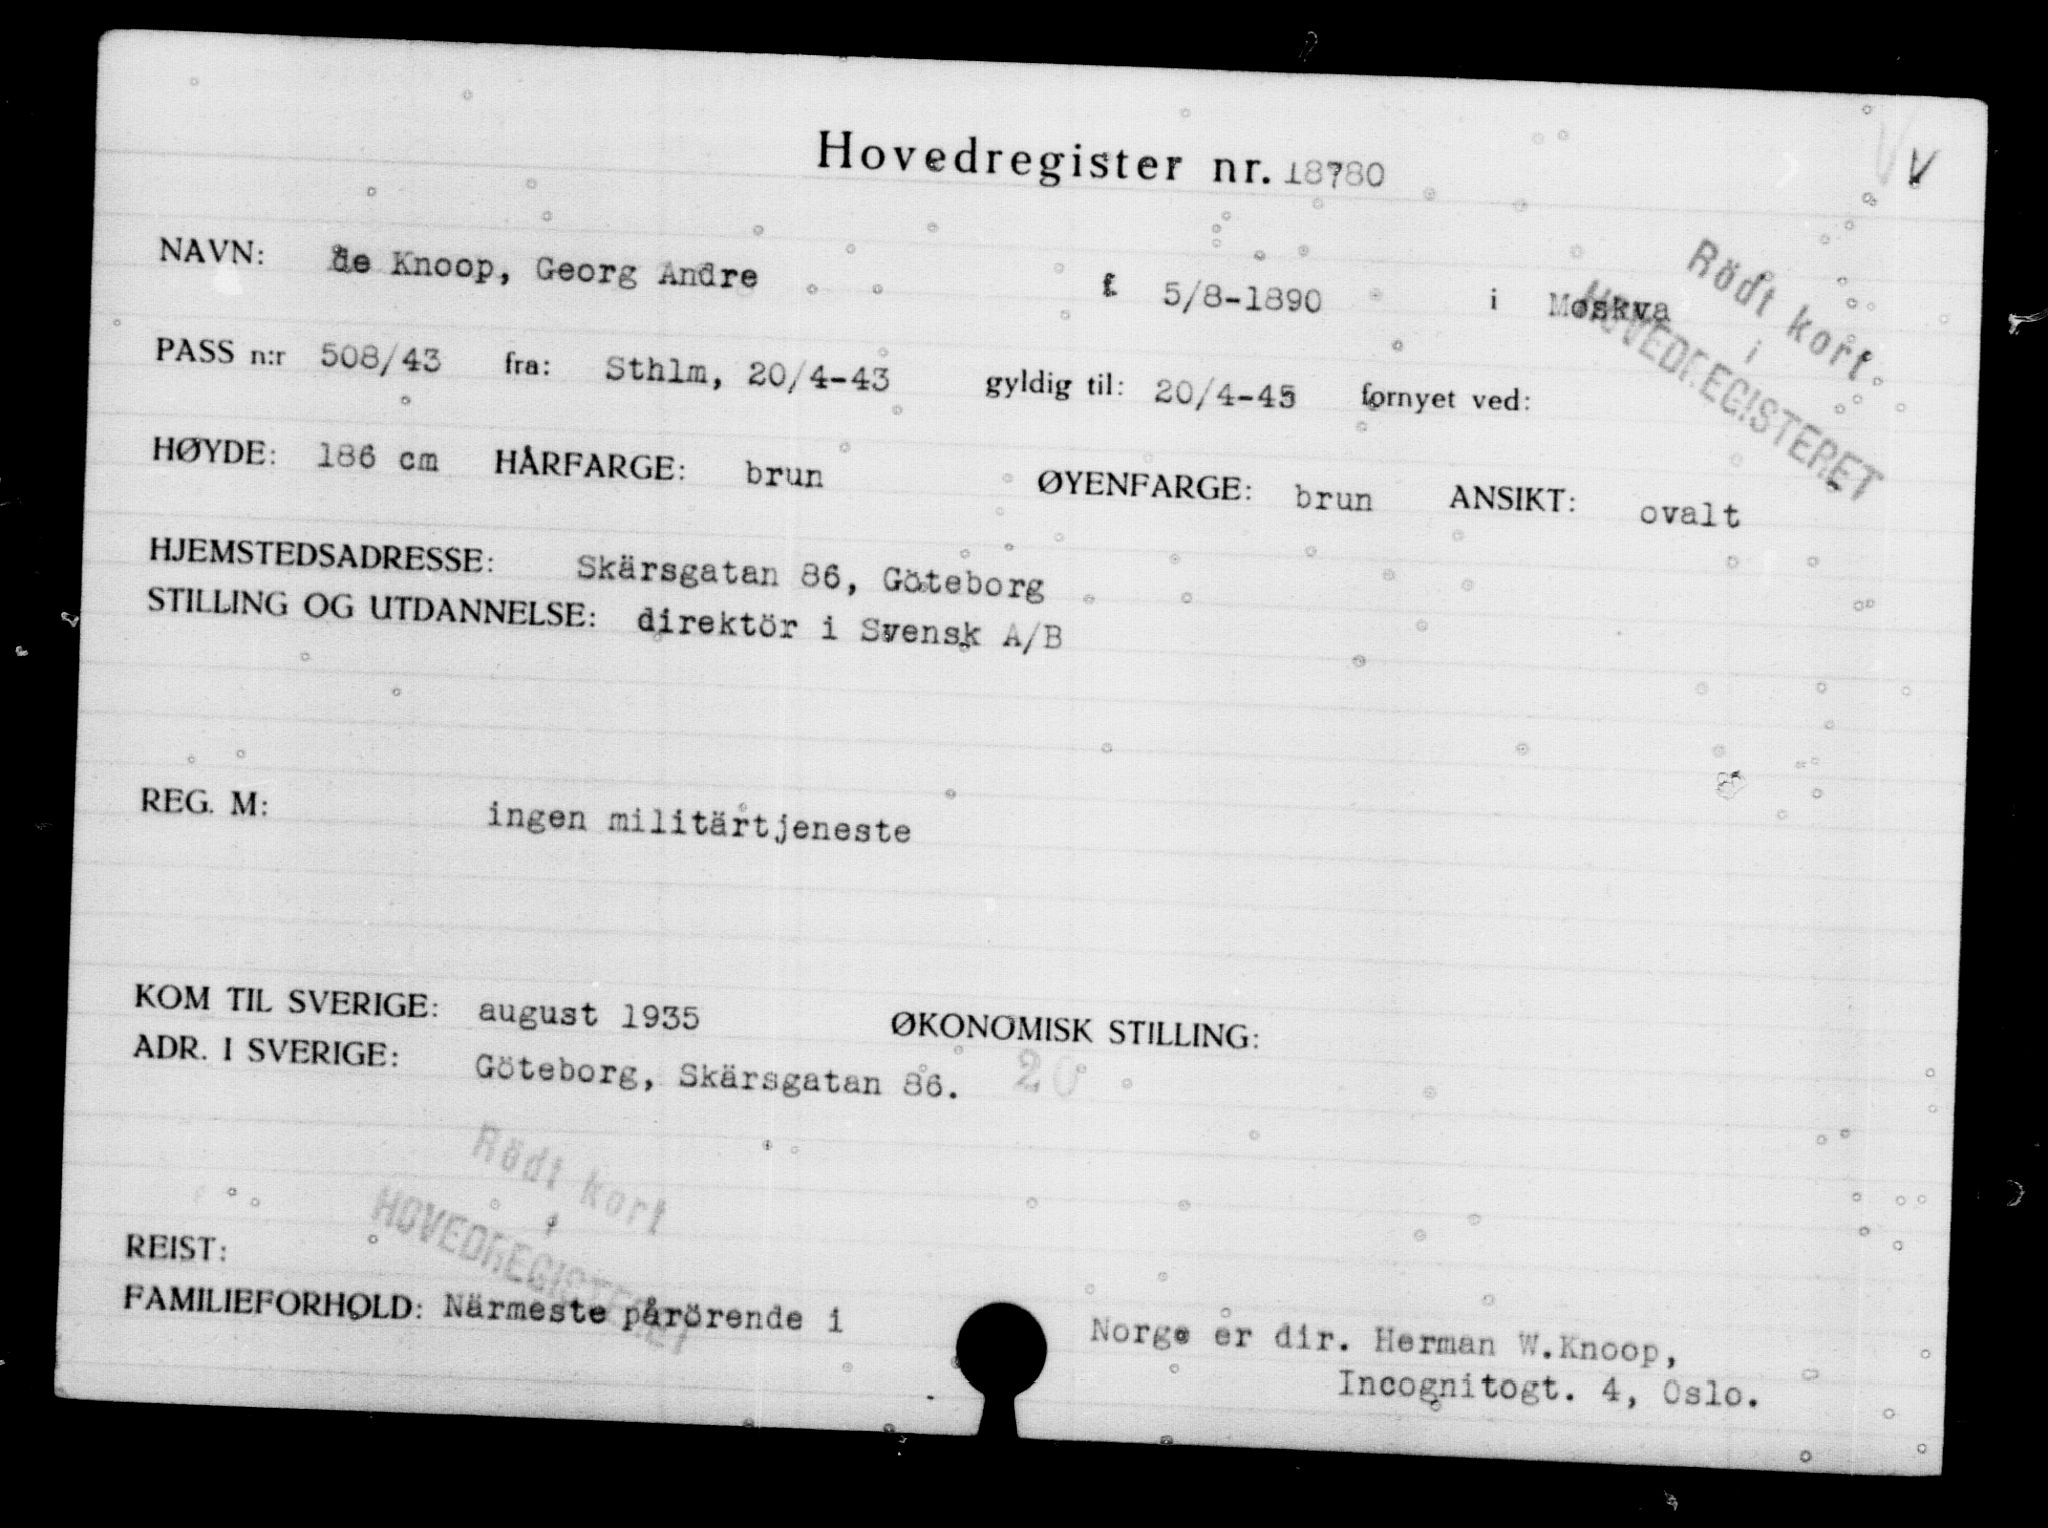 Hovedregister nr. 18780
V
Rödt kort
i
HOVEDREGISTERET
NAVN: de Knoop, Georg Andre f 5/8-1890 i Moskva
PASS n:r 508/43 fra: Sthlm, 20/4-43 gyldig til: 20/4-45 fornyet ved:
HØYDE: 186 cm HÅRFARGE: brun ØYENFARGE: brun ANSIKT: ovalt
HJEMSTEDSADRESSE: Skärsgatan 86, Göteborg
STILLING OG UTDANNELSE: direktör i Svensk A/B
REG. M: ingen militärtjeneste
KOM TIL SVERIGE: august 1935 ØKONOMISK STILLING:
ADR. I SVERIGE: Göteborg, Skärsgatan 86. 20
Rödt kort
i
HOVEDREGISTERET
REIST:
FAMILIEFORHOLD: Närmeste pårörende i Norge er dir. Herman W.Knoop,
Incognitogt. 4, Oslo.